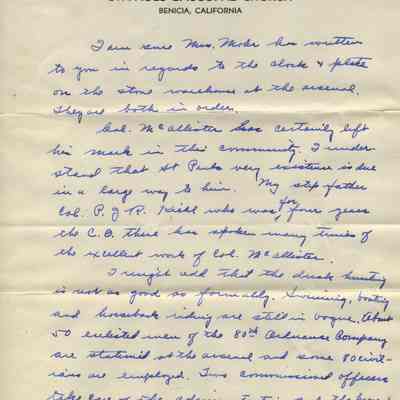 BENICIA, CALIFORNIA
I am sure Mrs. Mohr has written
to you in regards to the clock & plate
on the stone warehouse at the arsenal.
They are both in order.
Col. McAllister has certainly left
his mark in this community. I under-
stand that St Pauls very existence is due
in a large way to him. My step father
Col. P. J. R. Kiehl who was for four years
the C.O. there has spoken many times of
the excellent work of Col. McAllister.
I might add that the duck hunting
is not as good as formally. Swimming, boating
and horseback riding are still in vogue. About
50 enlisted men of the 80th Ordnance Company
are stationed at the arsenal and some 80 civil-
ians are employed. Two commissioned officers
take care of the